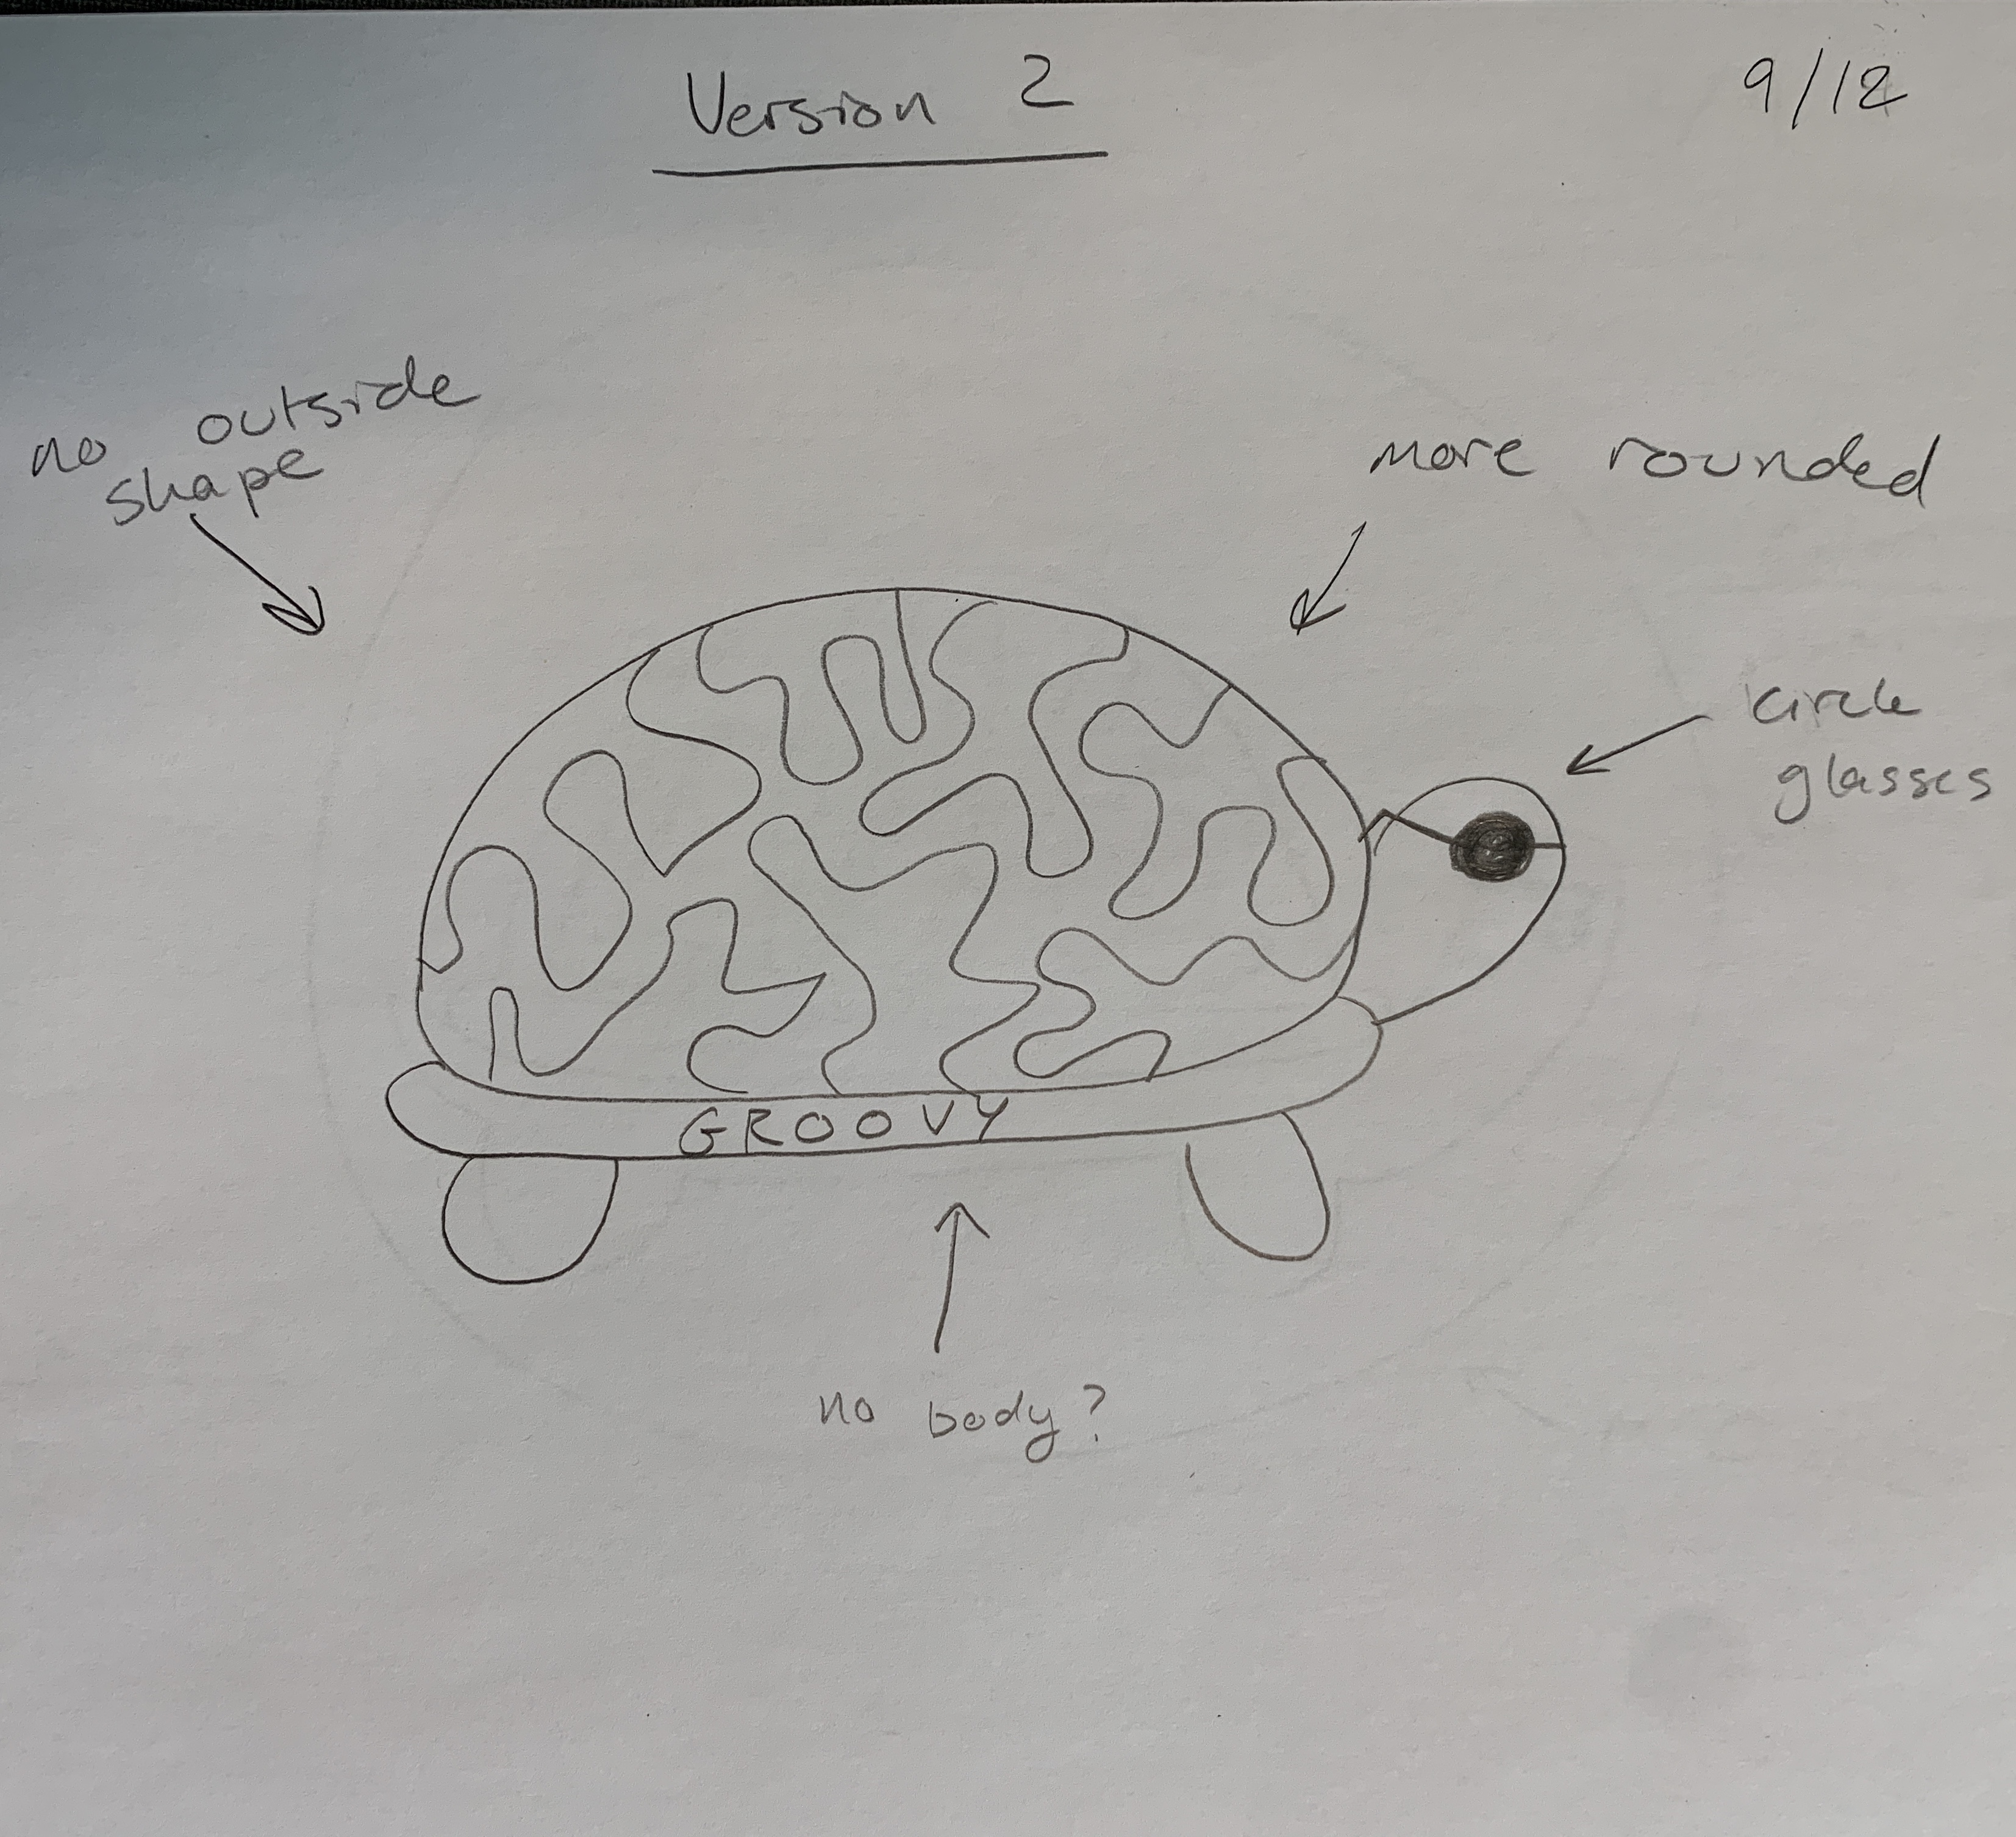 Version 2
9/12
no outside
shape
more rounded
circle
glasses
GROOVY
no body?